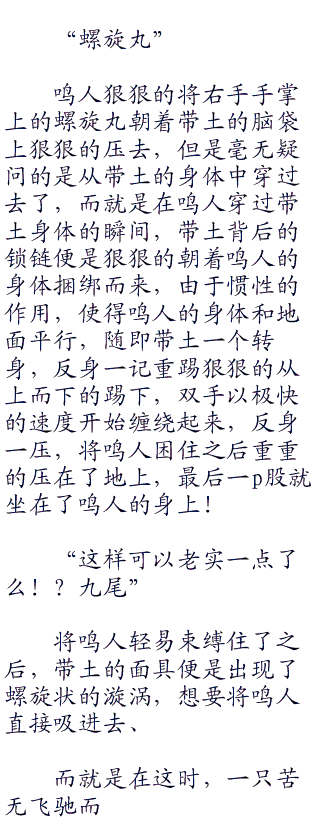 “螺旋丸”
鸣人狠狠的将右手手掌
上的螺旋丸朝着带土的脑袋
上狠狠的压去，但是毫无疑
问的是从带土的身体中穿过
去了，而就是在鸣人穿过带
土身体的瞬间，带土背后的
锁链便是狠狠的朝着鸣人的
身体捆绑而来，由于惯性的
作用，使得鸣人的身体和地
面平行，随即带土一个转
身，反身一记重踢狠狠的从
上而下的踢下，双手以极快
的速度开始缠绕起来，反身
一压，将鸣人困住之后重重
的压在了地上，最后一p股就
坐在了鸣人的身上！
“这样可以老实一点了
么！？九尾”
将鸣人轻易束缚住了之
后，带土的面具便是出现了
螺旋状的漩涡，想要将鸣人
直接吸进去、
而就是在这时，一只苦
无飞驰而